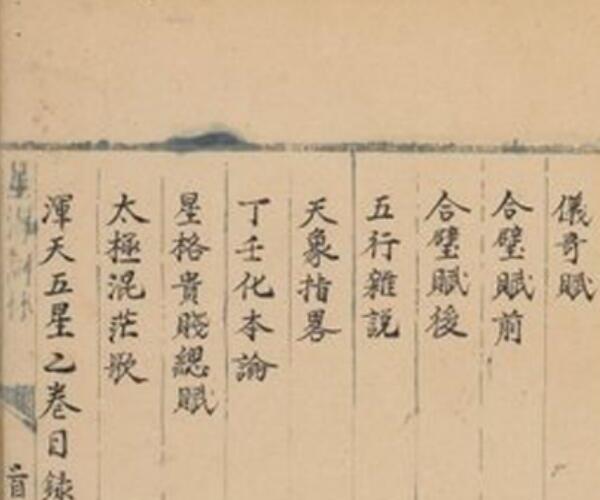 儀奇賦
合璧賦前
合璧賦後
五行雜説
天象指畧
丁壬化本論
星格貴賤總賦
太極混茫歌
渾天五星乙卷目錄